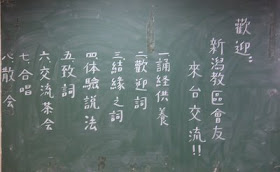 歡迎：
新潟教區會友
來台交流!!
一誦経供養
二歡迎詞
三結緣之詞
四体驗說法
五致詞
六交流茶会
七合唱
八散会